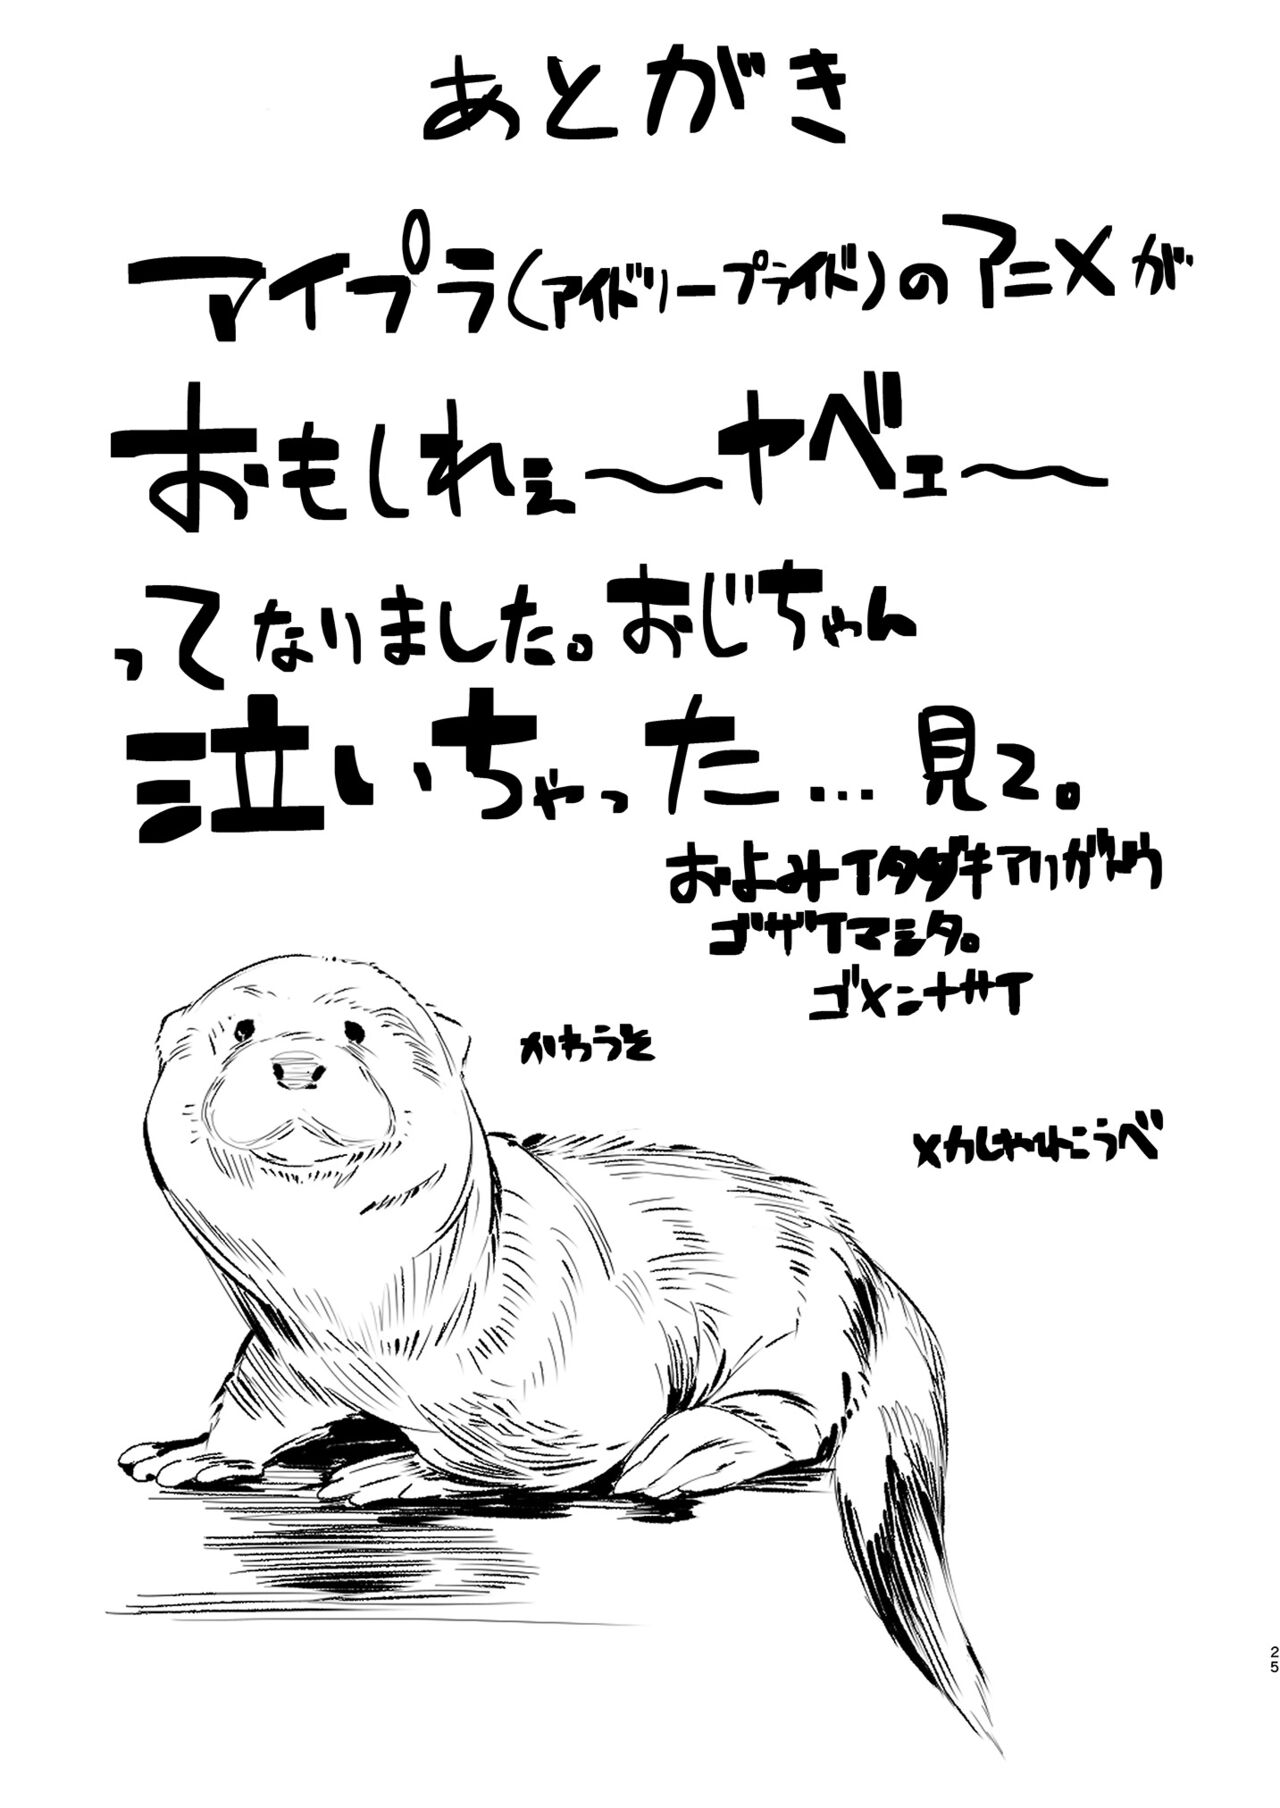 あとがき
アイプラ(アイドリープライド)のアニメが
おもしれぇ～ヤベェ～
ってなりました。おじちゃん
泣いちゃった…見て。
およみイタダキアリがトウ
ゴザイマシタ。
ゴメンナサイ
かわうそ
メカしゃひこうべ
25